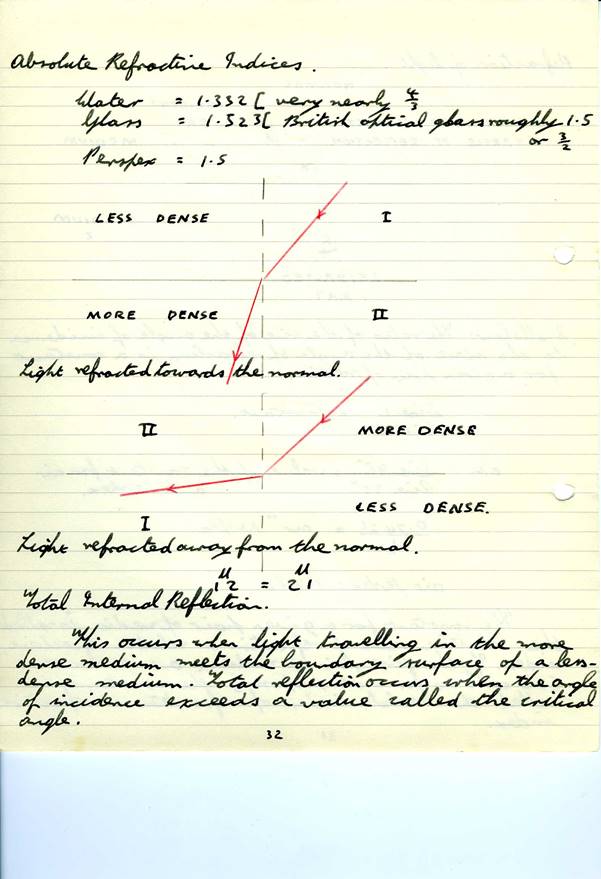 Absolute Refractive Indices.
Water = 1.332 [ very nearly 4/3
Glass = 1.523 [ British optical glass roughly 1.5
or 3/2
Perspex = 1.5
LESS DENSE I
MORE DENSE II
Light refracted towards the normal.
II MORE DENSE
LESS DENSE.
I
Light refracted away from the normal.
μ μ
12 = 21
Total Internal Reflection.
This occurs when light travelling in the more
dense medium meets the boundary surface of a less-
dense medium. Total reflection occurs when the angle
of incidence exceeds a value called the critical
angle.
32